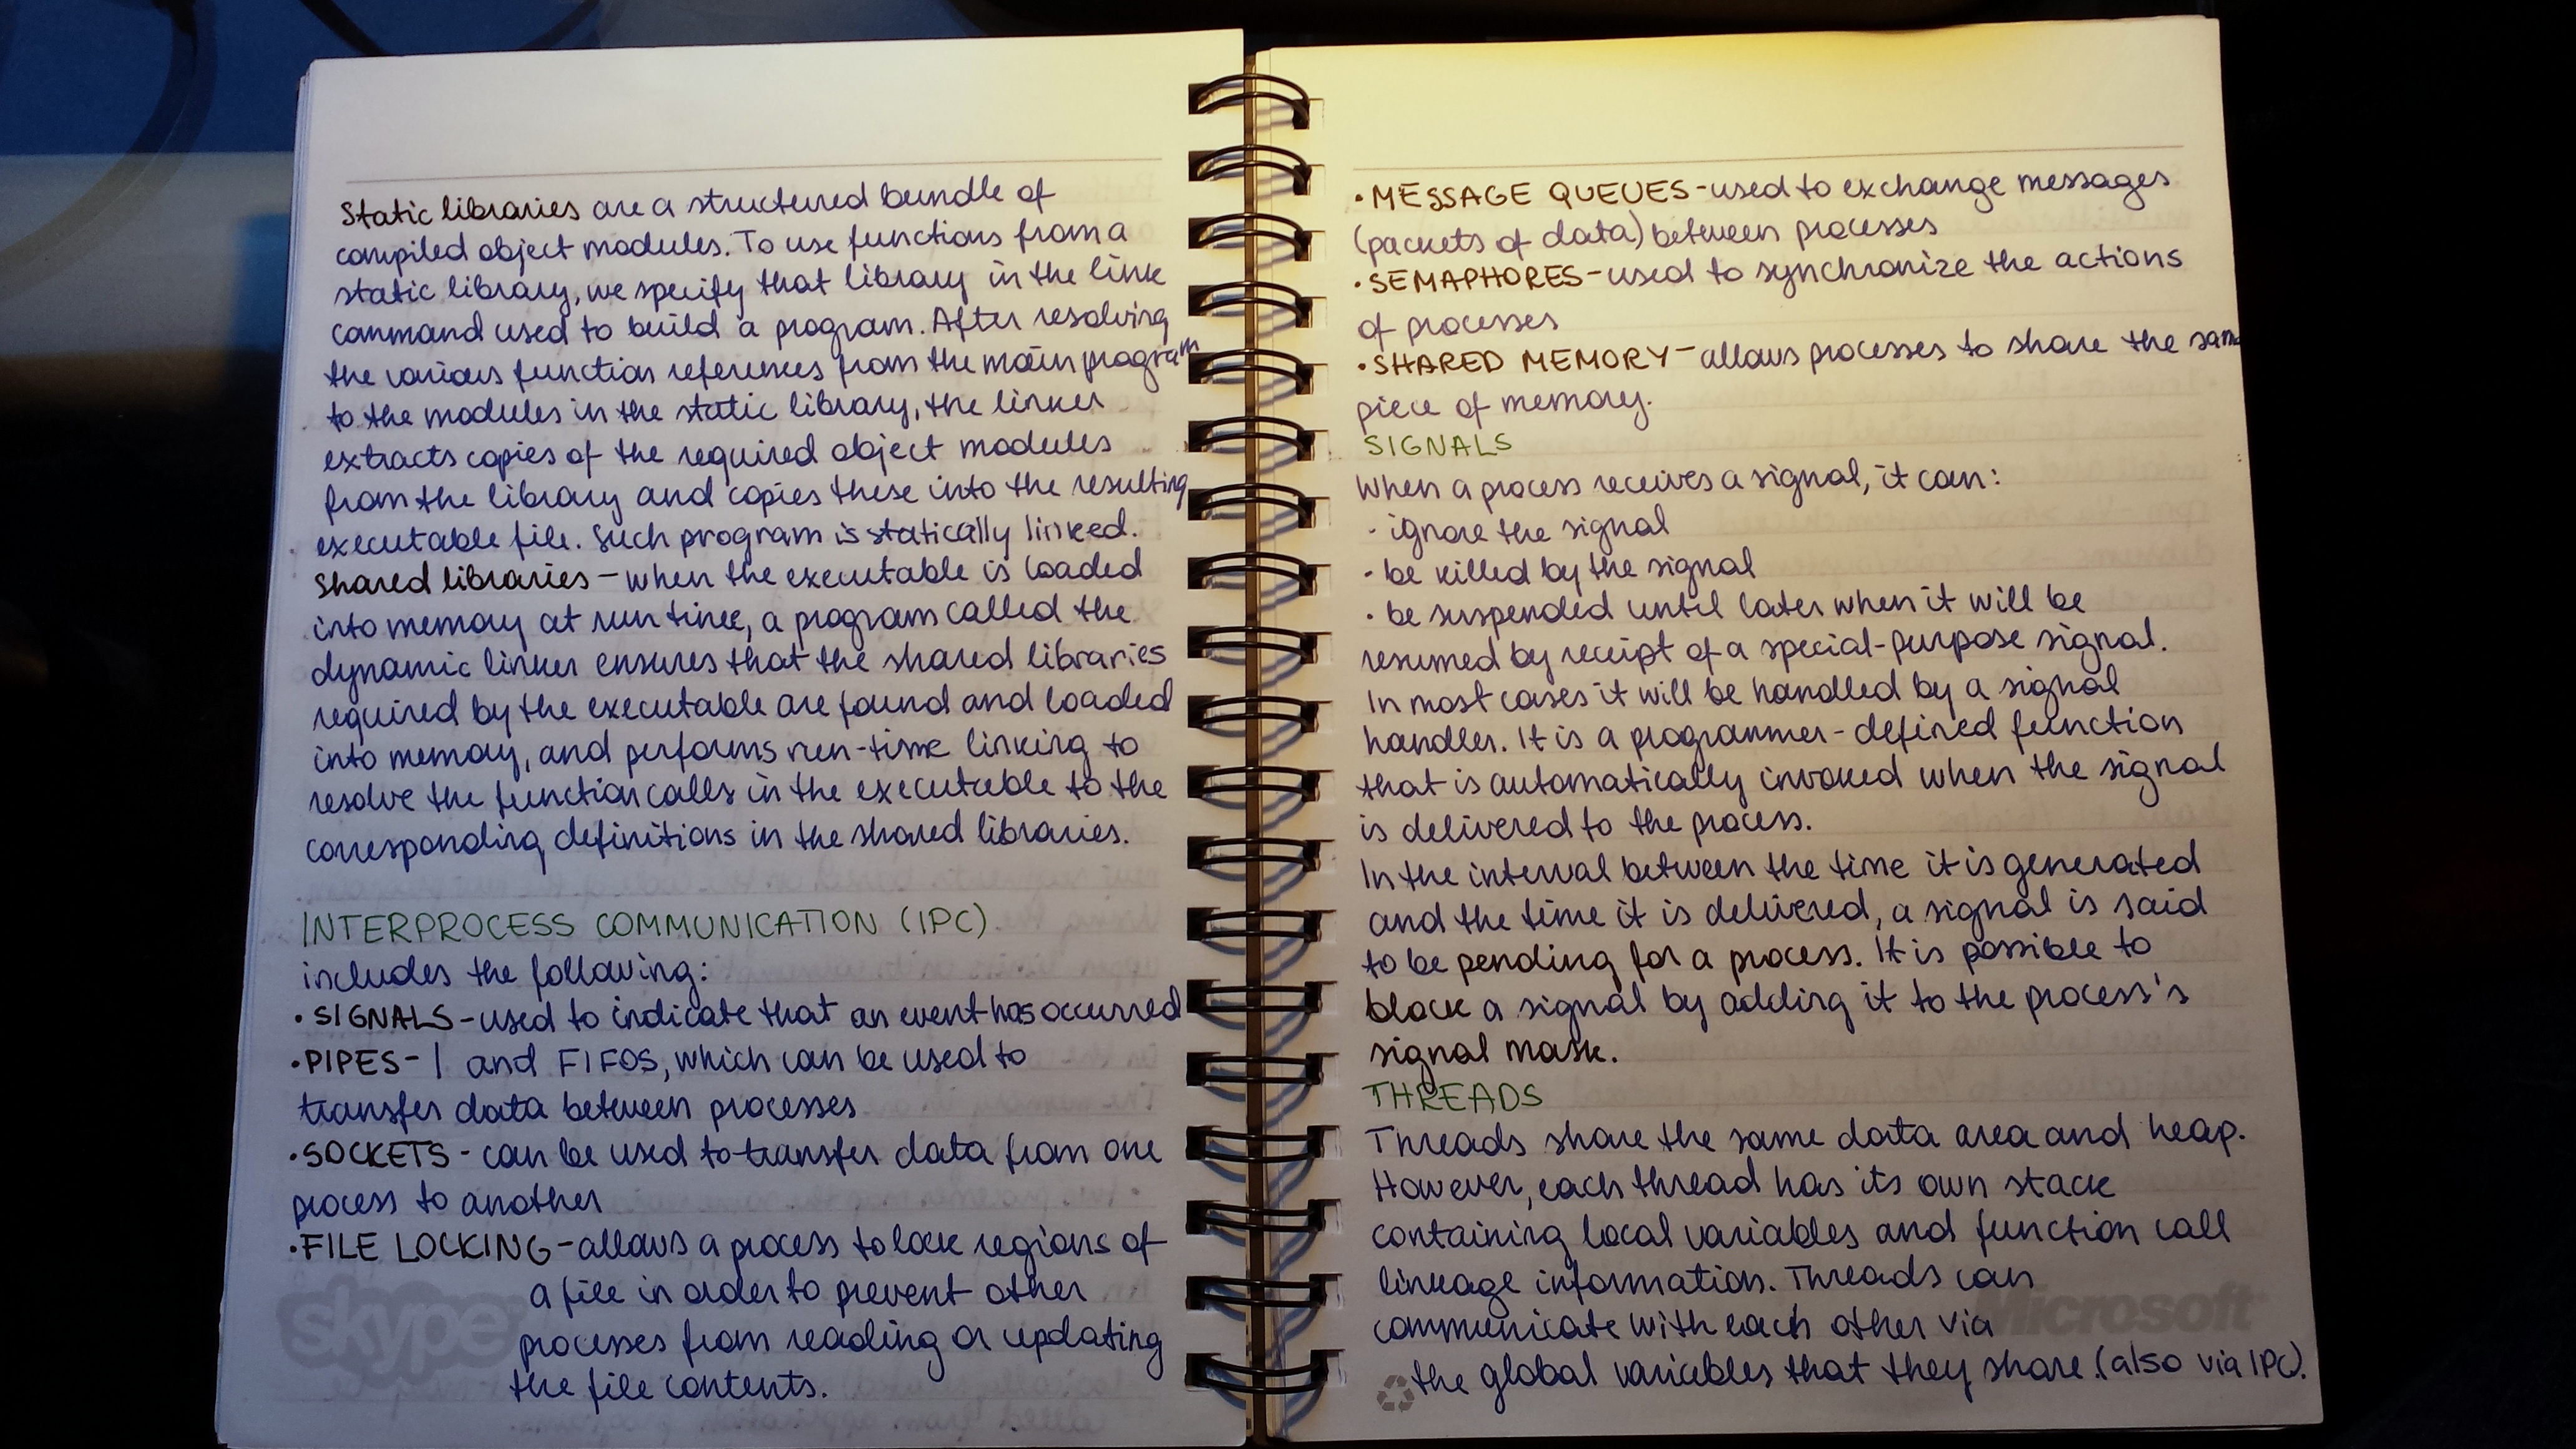 Static libraries are a structured bundle of
compiled object modules. To use functions from a
static library, we specify that library in the link
command used to build a program. After resolving
the various function references from the main program
to the modules in the static library, the linker
extracts copies of the required object modules
from the library and copies these into the resulting
executable file. Such program is statically linked.
Shared libraries - when the executable is loaded
into memory at run time, a program called the
dynamic linker ensures that the shared libraries
required by the executable are found and loaded
into memory, and performs run-time linking to
resolve the function calls in the executable to the
corresponding definitions in the shared libraries.
INTERPROCESS COMMUNICATION (IPC)
includes the following:
• SIGNALS - used to indicate that an event has occurred
• PIPES - | and FIFOS, which can be used to
transfer data between processes
• SOCKETS - can be used to transfer data from one
process to another
• FILE LOCKING - allows a process to lock regions of
a file in order to prevent other
processes from reading or updating
the file contents.
skype
• MESSAGE QUEUES - used to exchange messages
(packets of data) between processes
• SEMAPHORES - used to synchronize the actions
of processes
• SHARED MEMORY - allows processes to share the same
piece of memory.
SIGNALS
When a process receives a signal, it can:
- ignore the signal
- be killed by the signal
- be suspended until later when it will be
resumed by receipt of a special-purpose signal.
In most cases it will be handled by a signal
handler. It is a programmer-defined function
that is automatically invoked when the signal
is delivered to the process.
In the interval between the time it is generated
and the time it is delivered, a signal is said
to be pending for a process. It is possible to
block a signal by adding it to the process's
signal mask.
THREADS
Threads share the same data area and heap.
However, each thread has its own stack
containing local variables and function call
linkage information. Threads can
communicate with each other via
the global variables that they share. (also via IPC).
Microsoft